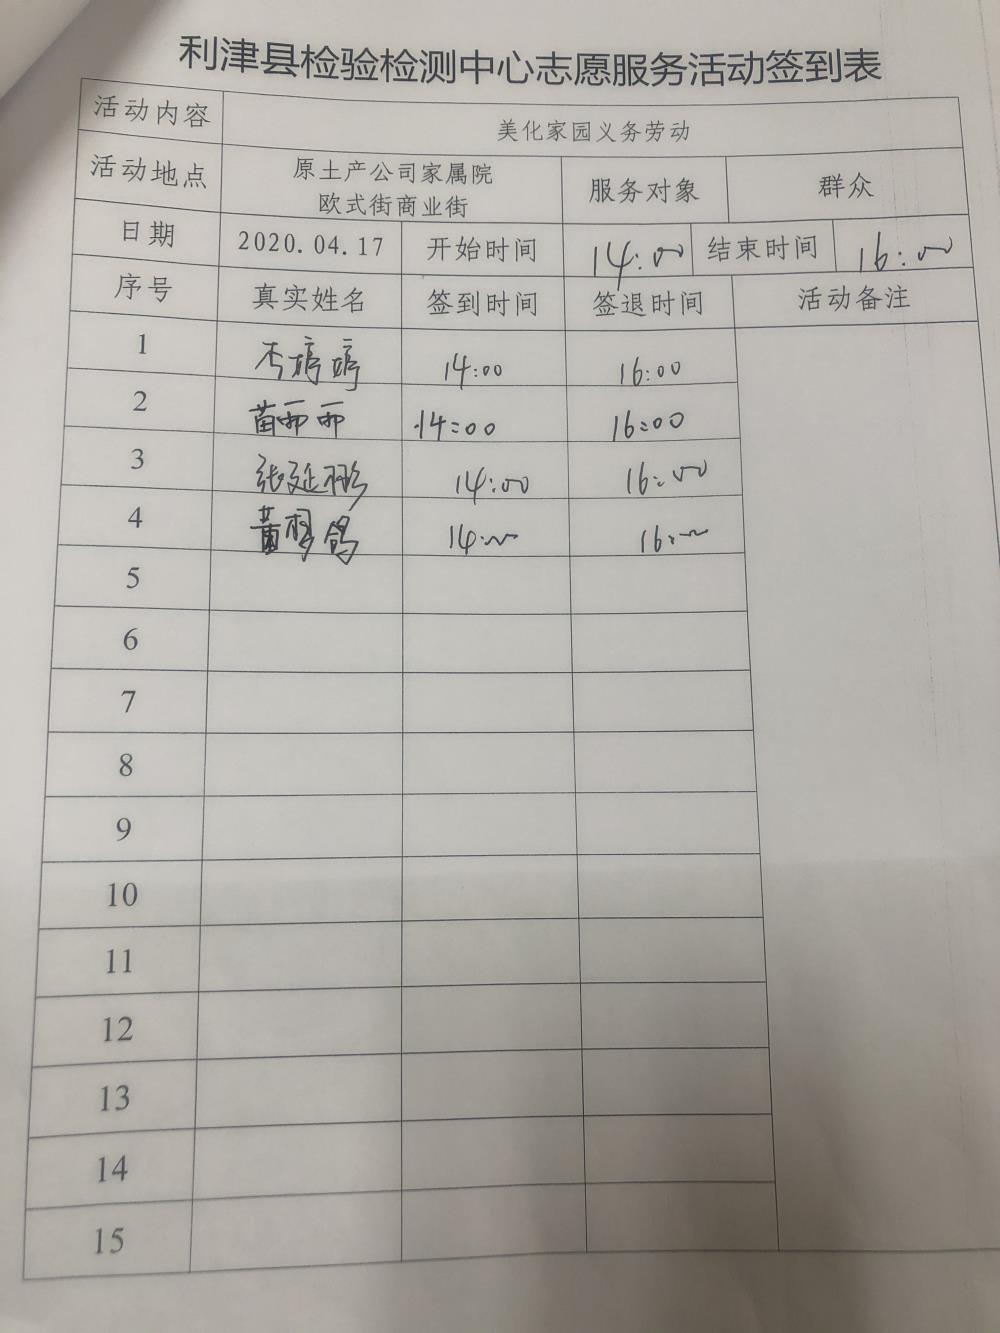 利津县检验检测中心志愿服务活动签到表
活动内容 美化家园义务劳动
活动地点 原土产公司家属院 欧式街商业街 服务对象 群众
日期 2020.04.17 开始时间 14:00 结束时间 16:00
序号 真实姓名 签到时间 签退时间 活动备注
1 李婷婷 14:00 16:00
2 苗雨雨 14:00 16:00
3 张延彬 14:00 16:00
4 黄 鸽 14:00 16:00
5
6
7
8
9
10
11
12
13
14
15